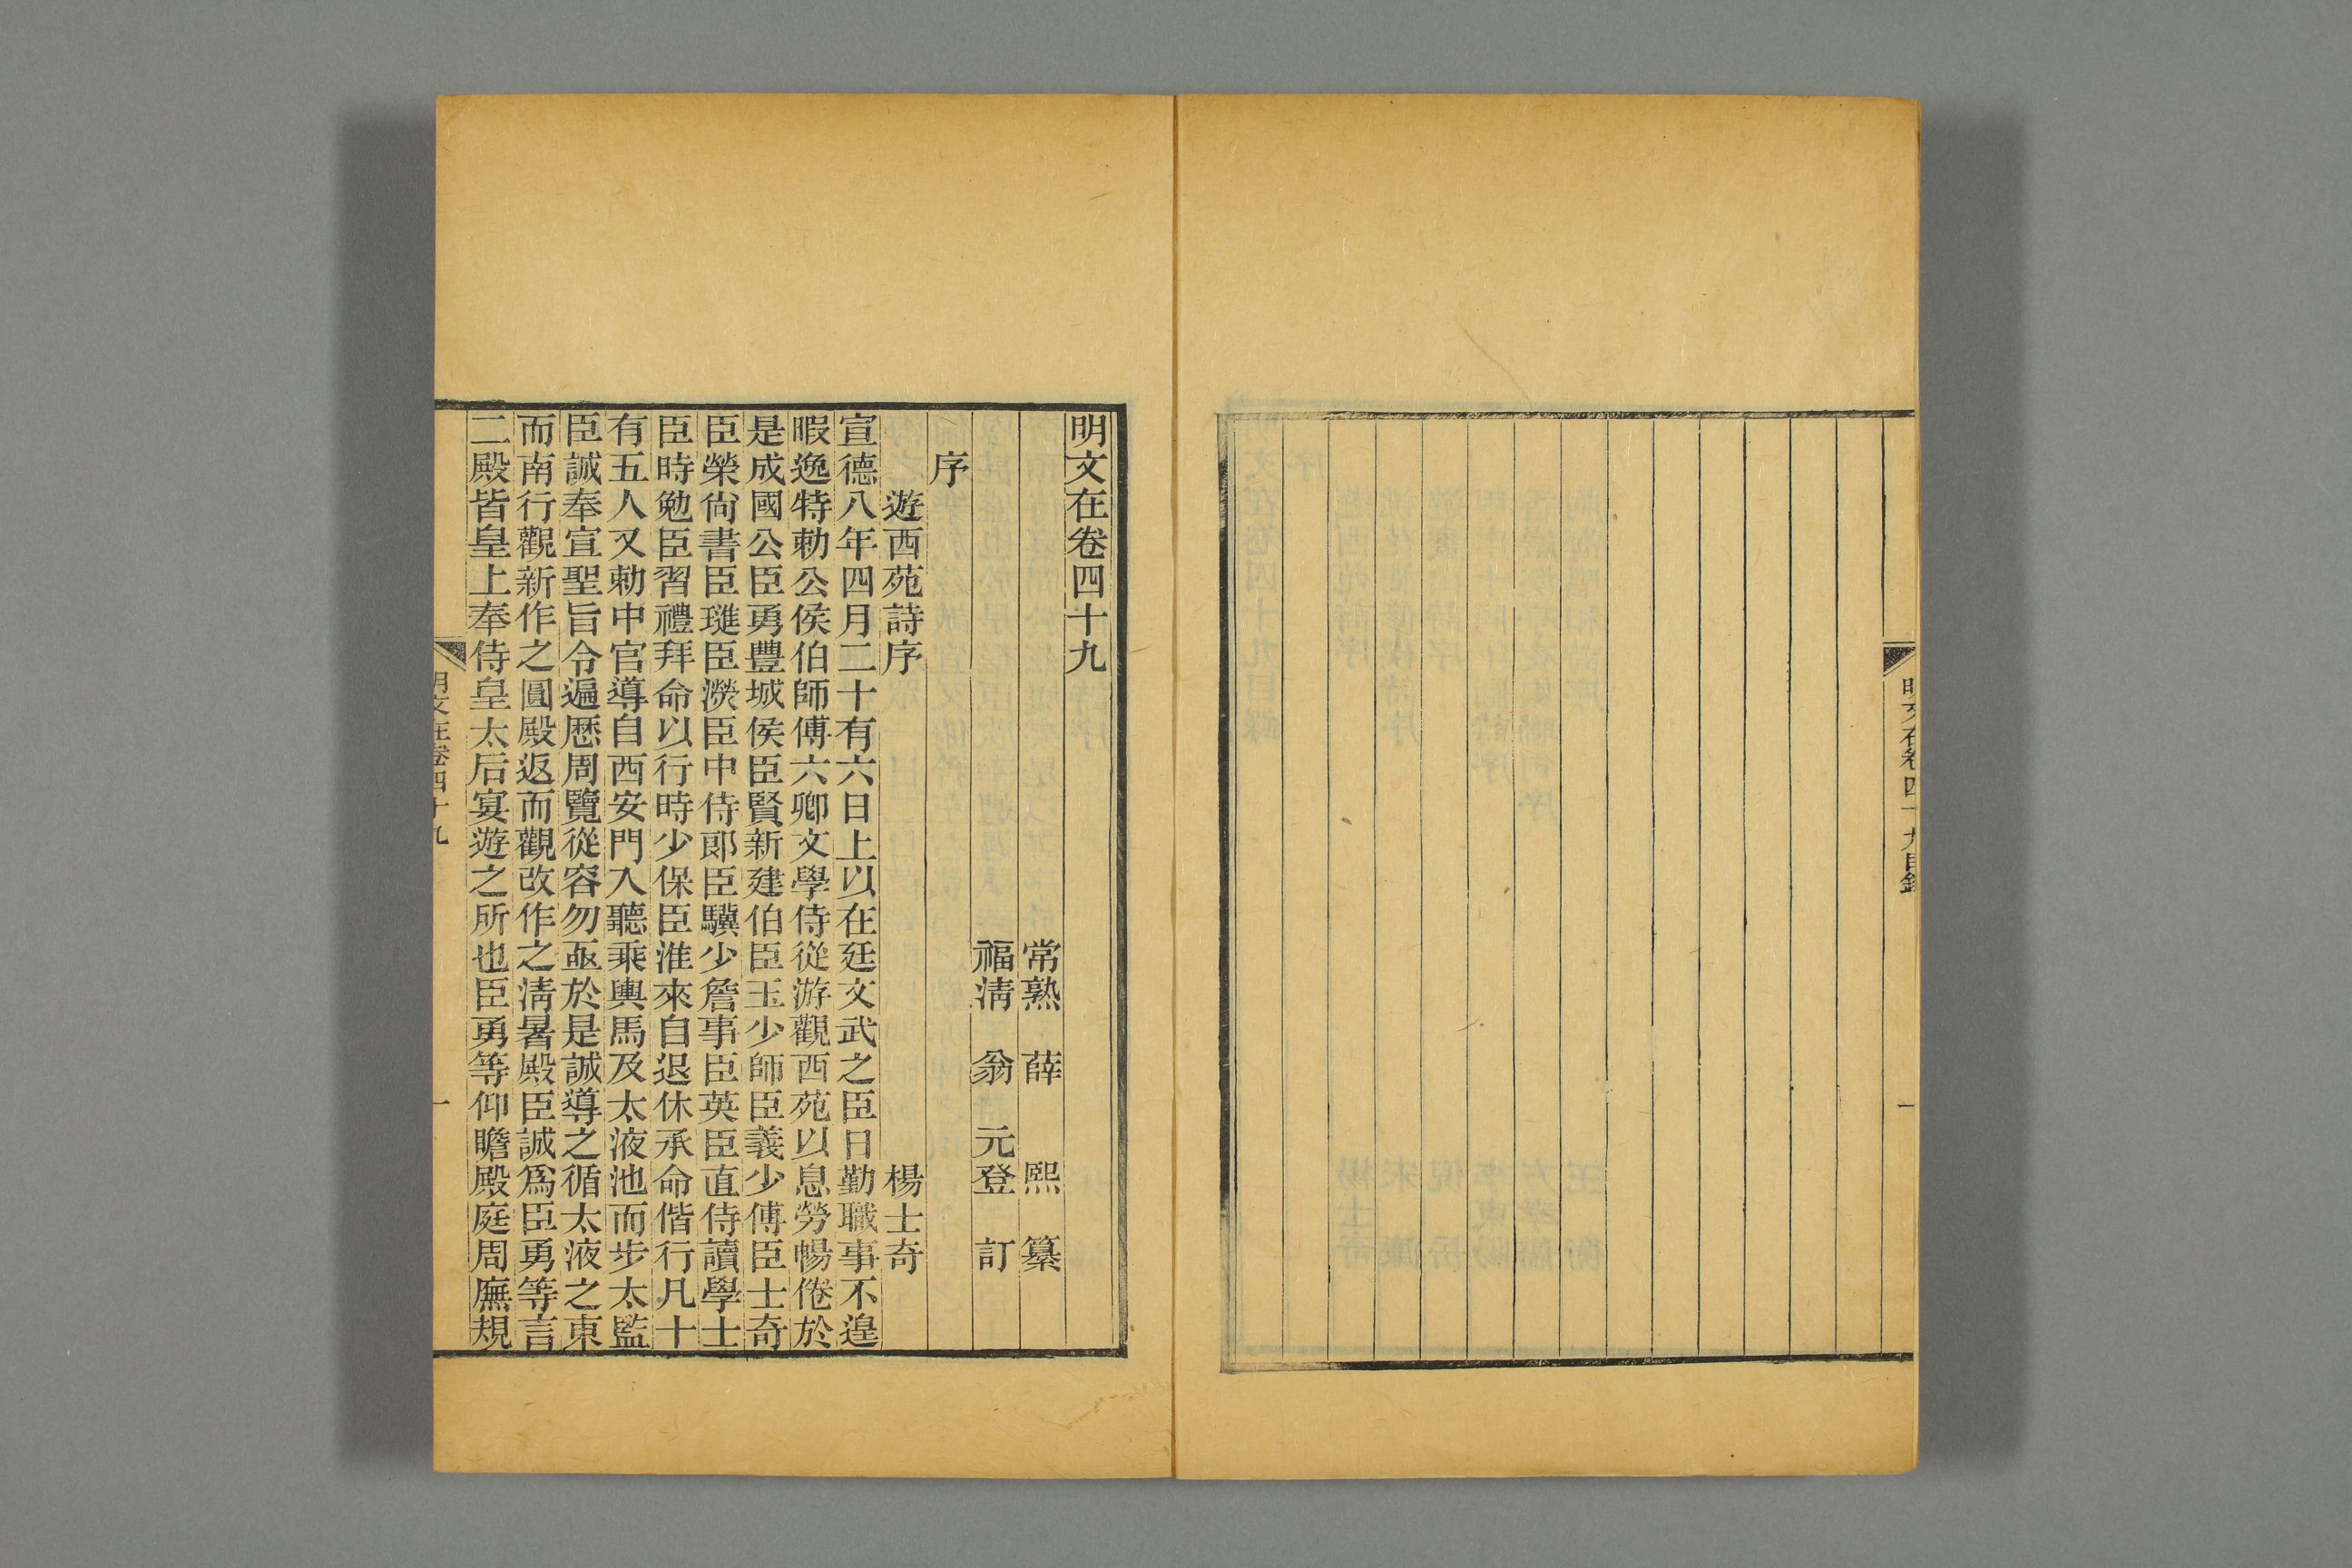 明文在卷四十九目錄
一
明文在卷四十九
常熟 薛 熙 纂
福淸 翁 元登 訂
序
遊西苑詩序 楊士奇
宣德八年四月二十有六日上以在廷文武之臣日勤職事不遑
暇逸特勅公侯伯師傅六卿文學侍從游觀西苑以息勞暢倦於
是成國公臣勇豐城侯臣賢新建伯臣玉少師臣義少傅臣士奇
臣榮尙書臣璡臣濙臣中侍郞臣驥少詹事臣英臣直侍讀學士
臣時勉臣習禮拜命以行時少保臣淮來自退休承命偕行凡十
有五人又勅中官導自西安門入聽乘輿馬及太液池而步太監
臣誠奉宣聖旨令遍歷周覽從容勿亟於是誠導之循太液之東
而南行觀新作之圓殿返而觀改作之淸暑殿臣誠爲臣勇等言
二殿皆皇上奉侍皇太后宴遊之所也臣勇等仰瞻殿庭周廡規
明文在卷四十九
一